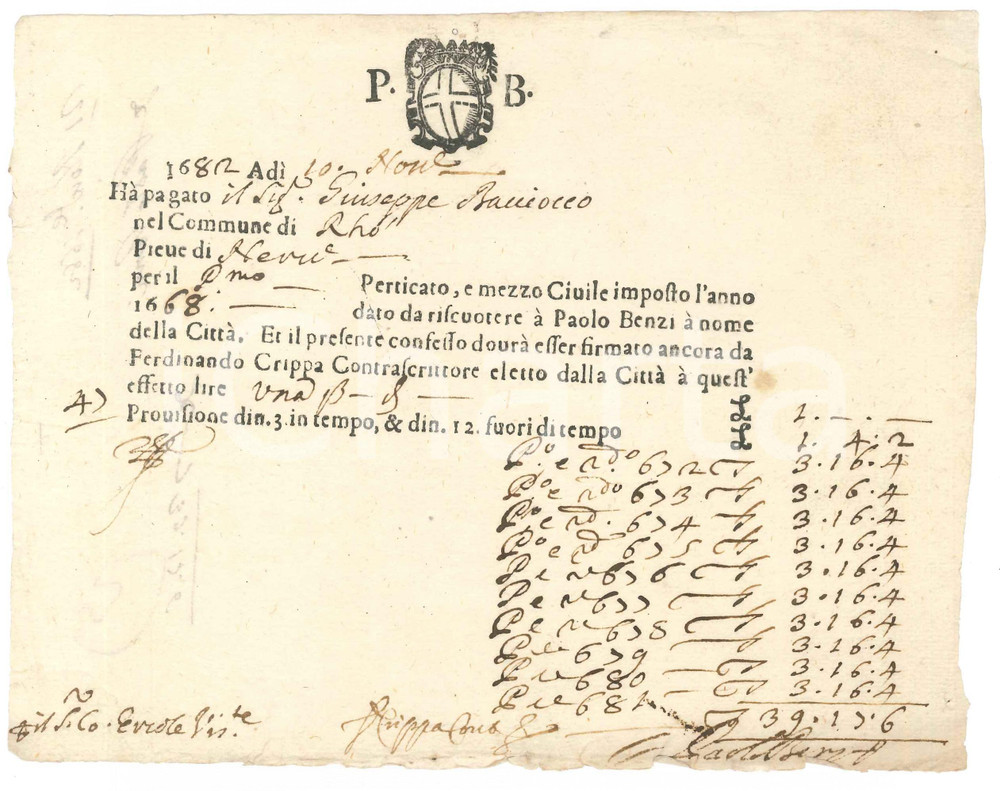 P. B.
1682 Adì 10. Nou.e
Hà pagato il Sig.r Giuseppe Bacciocco
nel Commune di Rhò
Pieue di Neru.e
per il P.mo Perticato, e mezzo Ciuile imposto l'anno
1668: dato da riscuotere à Paolo Benzi à nome
della Città. Et il presente confesso dourà esser firmato ancora da
Ferdinando Crippa Contrascrittore eletto dalla Città à quest'
effetto lire una ß — d —
47 Prouisione din. 3. in tempo, & din. 12. fuori di tempo 1. — . —
1. 4: 2
P.o e 2.do 672 3. 16. 4
P.o e 2.do 673 3. 16. 4
P.o e 2.d. 674 3. 16. 4
P.o e 2.d 675 3. 16. 4
P e 2 676 3. 16. 4
P e 2 677 3. 16. 4
P e 2 678 3. 16. 4
P e 679 3. 16. 4
P e 680 3. 16. 4
P e 681 3. 16. 4
39. 17. 6
il S.r Co. Ercole Vis.te
Crippa Cont.
Paolo Benzi